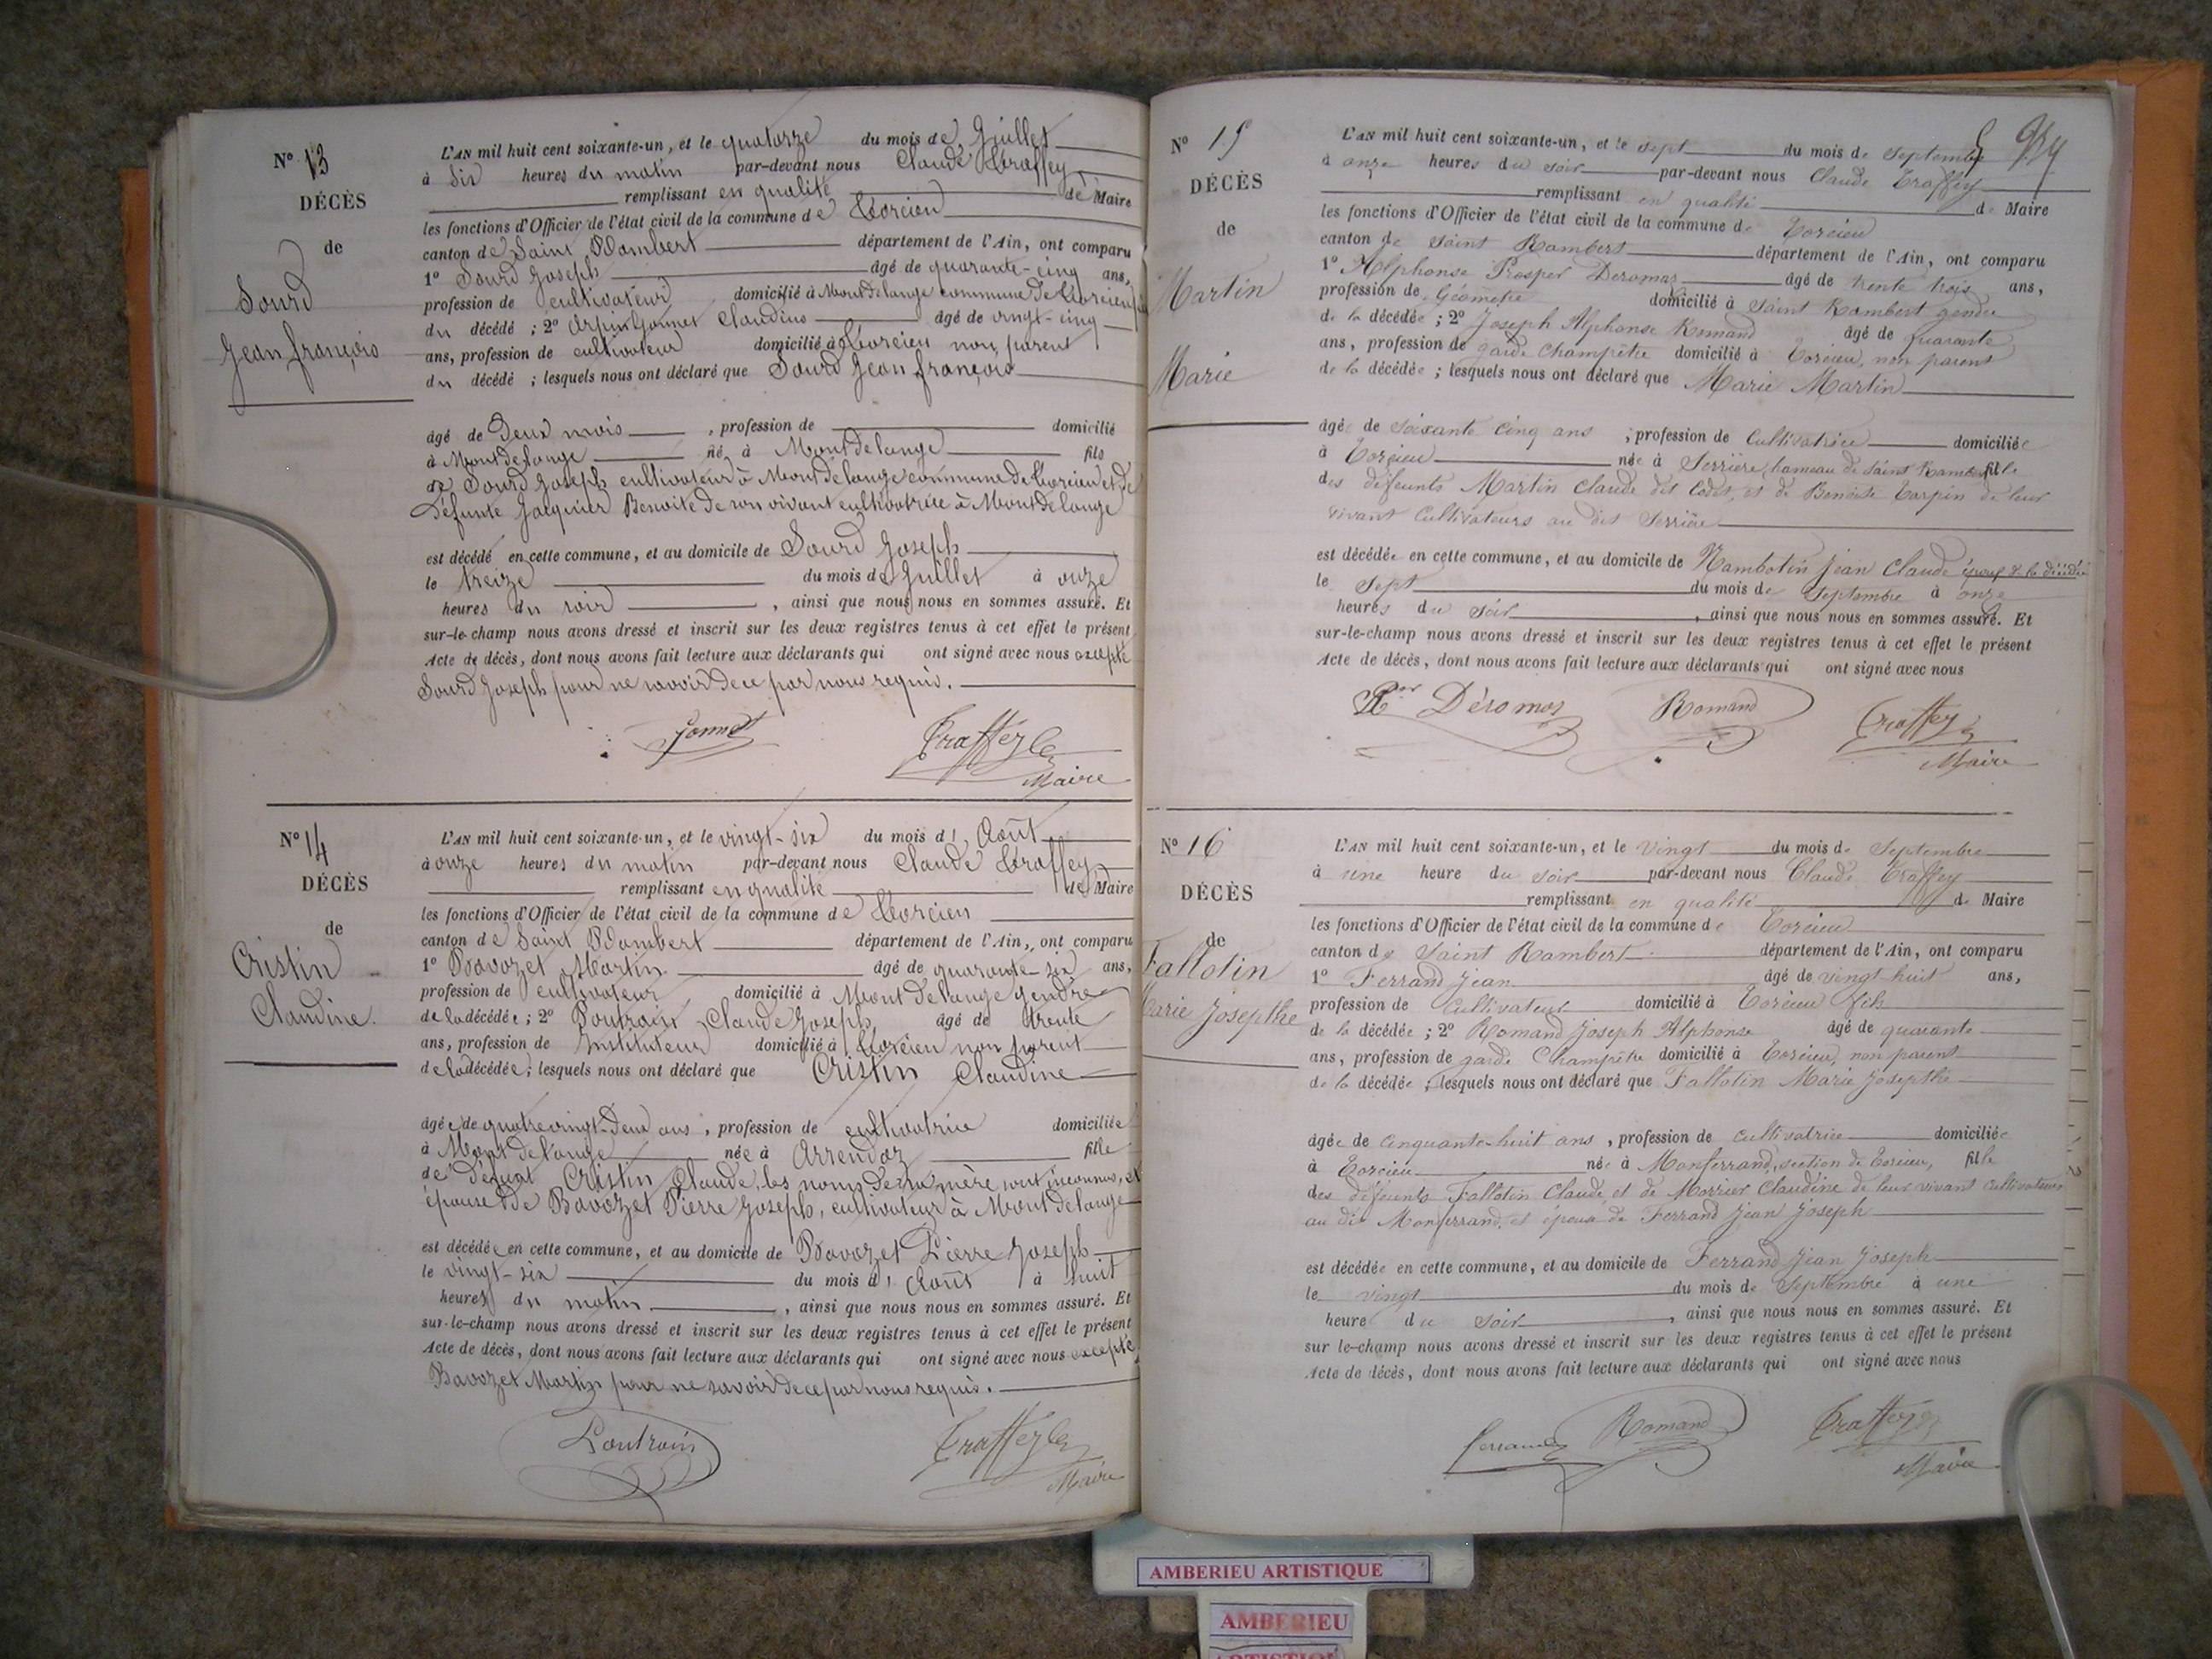 N° 13
DÉCÈS
de
Sourd
Jean françois
L'AN mil huit cent soixante-un, et le quatorze du mois de Juillet
à Six heures du matin par-devant nous Claude Traffey
remplissant en qualité de Maire
les fonctions d'Officier de l'état civil de la commune de Torcieu
canton de Saint Rambert département de l'Ain, ont comparu
1° Sourd Joseph âgé de quarante-cinq ans,
profession de cultivateur domicilié à Montdelange commune de Torcieu
du décédé ; 2° Claudius âgé de vingt-cinq
ans, profession de cultivateur domicilié à Torcieu non parent
du décédé ; lesquels nous ont déclaré que Sourd Jean françois
âgé de Deux mois , profession de domicilié
à Montdelange né à Montdelange fils
de Sourd Joseph cultivateur à Montdelange commune de Torcieu et de
Défunte Jacquier Benoite de son vivant cultivatrice à Montdelange
est décédé en cette commune, et au domicile de Sourd Joseph
le treize du mois de Juillet à onze
heures du soir , ainsi que nous nous en sommes assuré. Et
sur-le-champ nous avons dressé et inscrit sur les deux registres tenus à cet effet le présent
Acte de décès, dont nous avons fait lecture aux déclarants qui ont signé avec nous excepté
Sourd Joseph pour ne savoir de ce par nous requis.
Traffey
Maire
N° 14
DÉCÈS
de
Cristin
Claudine
L'AN mil huit cent soixante-un, et le vingt-six du mois d' Août
à onze heures du matin par-devant nous Claude Traffey
remplissant en qualité de Maire
les fonctions d'Officier de l'état civil de la commune de Torcieu
canton de Saint Rambert département de l'Ain, ont comparu
1° Bavozet Martin âgé de quarante-six ans,
profession de cultivateur domicilié à Montdelange gendre
de la décédée ; 2° Claude Joseph âgé de trente
ans, profession de Instituteur domicilié à Torcieu non parent
de la décédée ; lesquels nous ont déclaré que Cristin Claudine
âgée de quatre vingt-deux ans , profession de cultivatrice domiciliée
à Montdelange née à Arrendaz fille
de Défunt Cristin Claude, les noms de sa mère sont inconnus, et
épouse de Bavozet Pierre Joseph, cultivateur à Montdelange
est décédée en cette commune, et au domicile de Bavozet Pierre Joseph
le vingt-six du mois d' Août à huit
heures du matin , ainsi que nous nous en sommes assuré. Et
sur-le-champ nous avons dressé et inscrit sur les deux registres tenus à cet effet le présent
Acte de décès, dont nous avons fait lecture aux déclarants qui ont signé avec nous excepté
Bavozet Martin pour ne savoir de ce par nous requis.
Traffey
Maire
N° 15
DÉCÈS
de
Martin
Marie
L'AN mil huit cent soixante-un, et le sept du mois de Septembre
à onze heures du soir par-devant nous Claude Traffey
remplissant en qualité de Maire
les fonctions d'Officier de l'état civil de la commune de Torcieu
canton de Saint Rambert département de l'Ain, ont comparu
1° Alphonse Prosper Deromas âgé de trente trois ans,
profession de Géomètre domicilié à Saint Rambert gendre
de la décédée ; 2° Joseph Alphonse Romand âgé de quarante
ans, profession de garde Champêtre domicilié à Torcieu, non parent
de la décédée ; lesquels nous ont déclaré que Marie Martin
âgée de soixante cinq ans , profession de Cultivatrice domiciliée
à Torcieu née à Serrière, hameau de Saint Rambert fille
des défeunts Martin Claude dit et de Benoite Tarpin de leur
vivant Cultivateurs au dit Serrière
est décédée en cette commune, et au domicile de Nambotin Jean Claude époux de la décédée
le Sept du mois de Septembre à onze
heures du soir , ainsi que nous nous en sommes assuré. Et
sur-le-champ nous avons dressé et inscrit sur les deux registres tenus à cet effet le présent
Acte de décès, dont nous avons fait lecture aux déclarants qui ont signé avec nous
Déromas Romand Traffey
Maire
N° 16
DÉCÈS
de
Fallotin
Marie Josepthe
L'AN mil huit cent soixante-un, et le vingt du mois de Septembre
à une heure du soir par-devant nous Claude Traffey
remplissant en qualité de Maire
les fonctions d'Officier de l'état civil de la commune de Torcieu
canton de Saint Rambert département de l'Ain, ont comparu
1° Ferrand Jean âgé de vingt huit ans,
profession de Cultivateur domicilié à Torcieu fils
de la décédée ; 2° Romand Joseph Alphonse âgé de quarante
ans, profession de garde Champêtre domicilié à Torcieu, non parent
de la décédée ; lesquels nous ont déclaré que Fallotin Marie Josepthe
âgée de cinquante-huit ans , profession de cultivatrice domiciliée
à Torcieu née à Monferrand, section de Torcieu, fille
des défeunts Fallotin Claude et de Morrier Claudine de leur vivant cultivateurs
au dit Monferrand, et épouse de Ferrand Jean Joseph
est décédée en cette commune, et au domicile de Ferrand Jean Joseph
le vingt du mois de Septembre à une
heure du soir , ainsi que nous nous en sommes assuré. Et
sur le-champ nous avons dressé et inscrit sur les deux registres tenus à cet effet le présent
Acte de décès, dont nous avons fait lecture aux déclarants qui ont signé avec nous
Ferrand Romand Traffey
Maire
AMBERIEU ARTISTIQUE
AMBERIEU
ARTISTIQUE